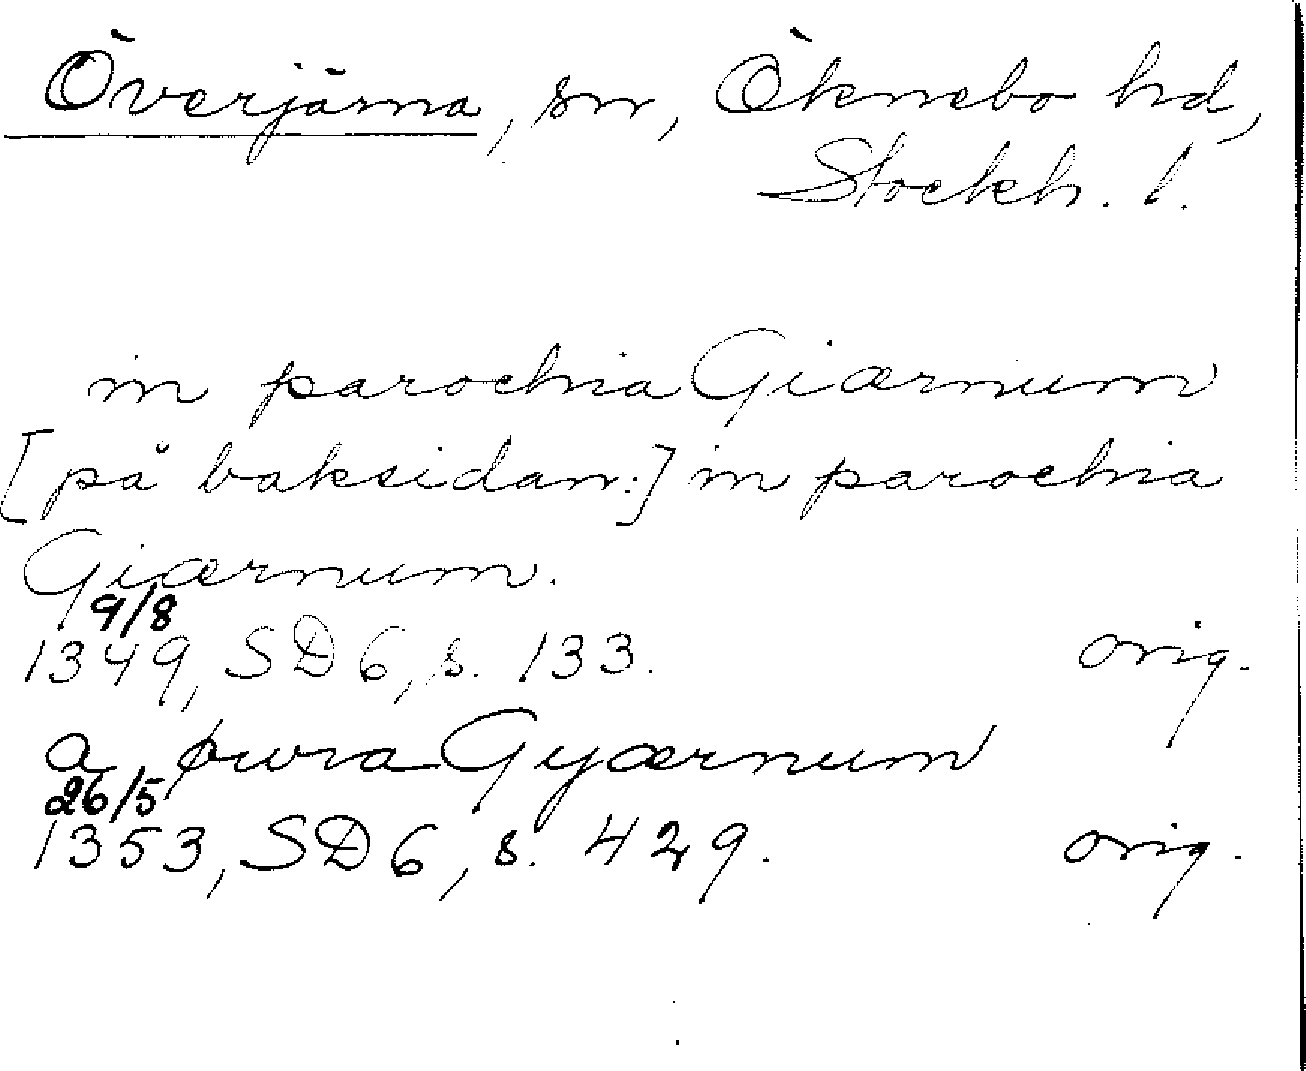 Överjärna, sn, Öknebo hd,
Stockh. l.
in parochia Giærnum
[på baksidan:] in parochia
Giærnum.
9/8
1349, SD 6, s. 133. orig.
a þwra Gyærnum
26/5
1353, SD 6, s. 429. orig.